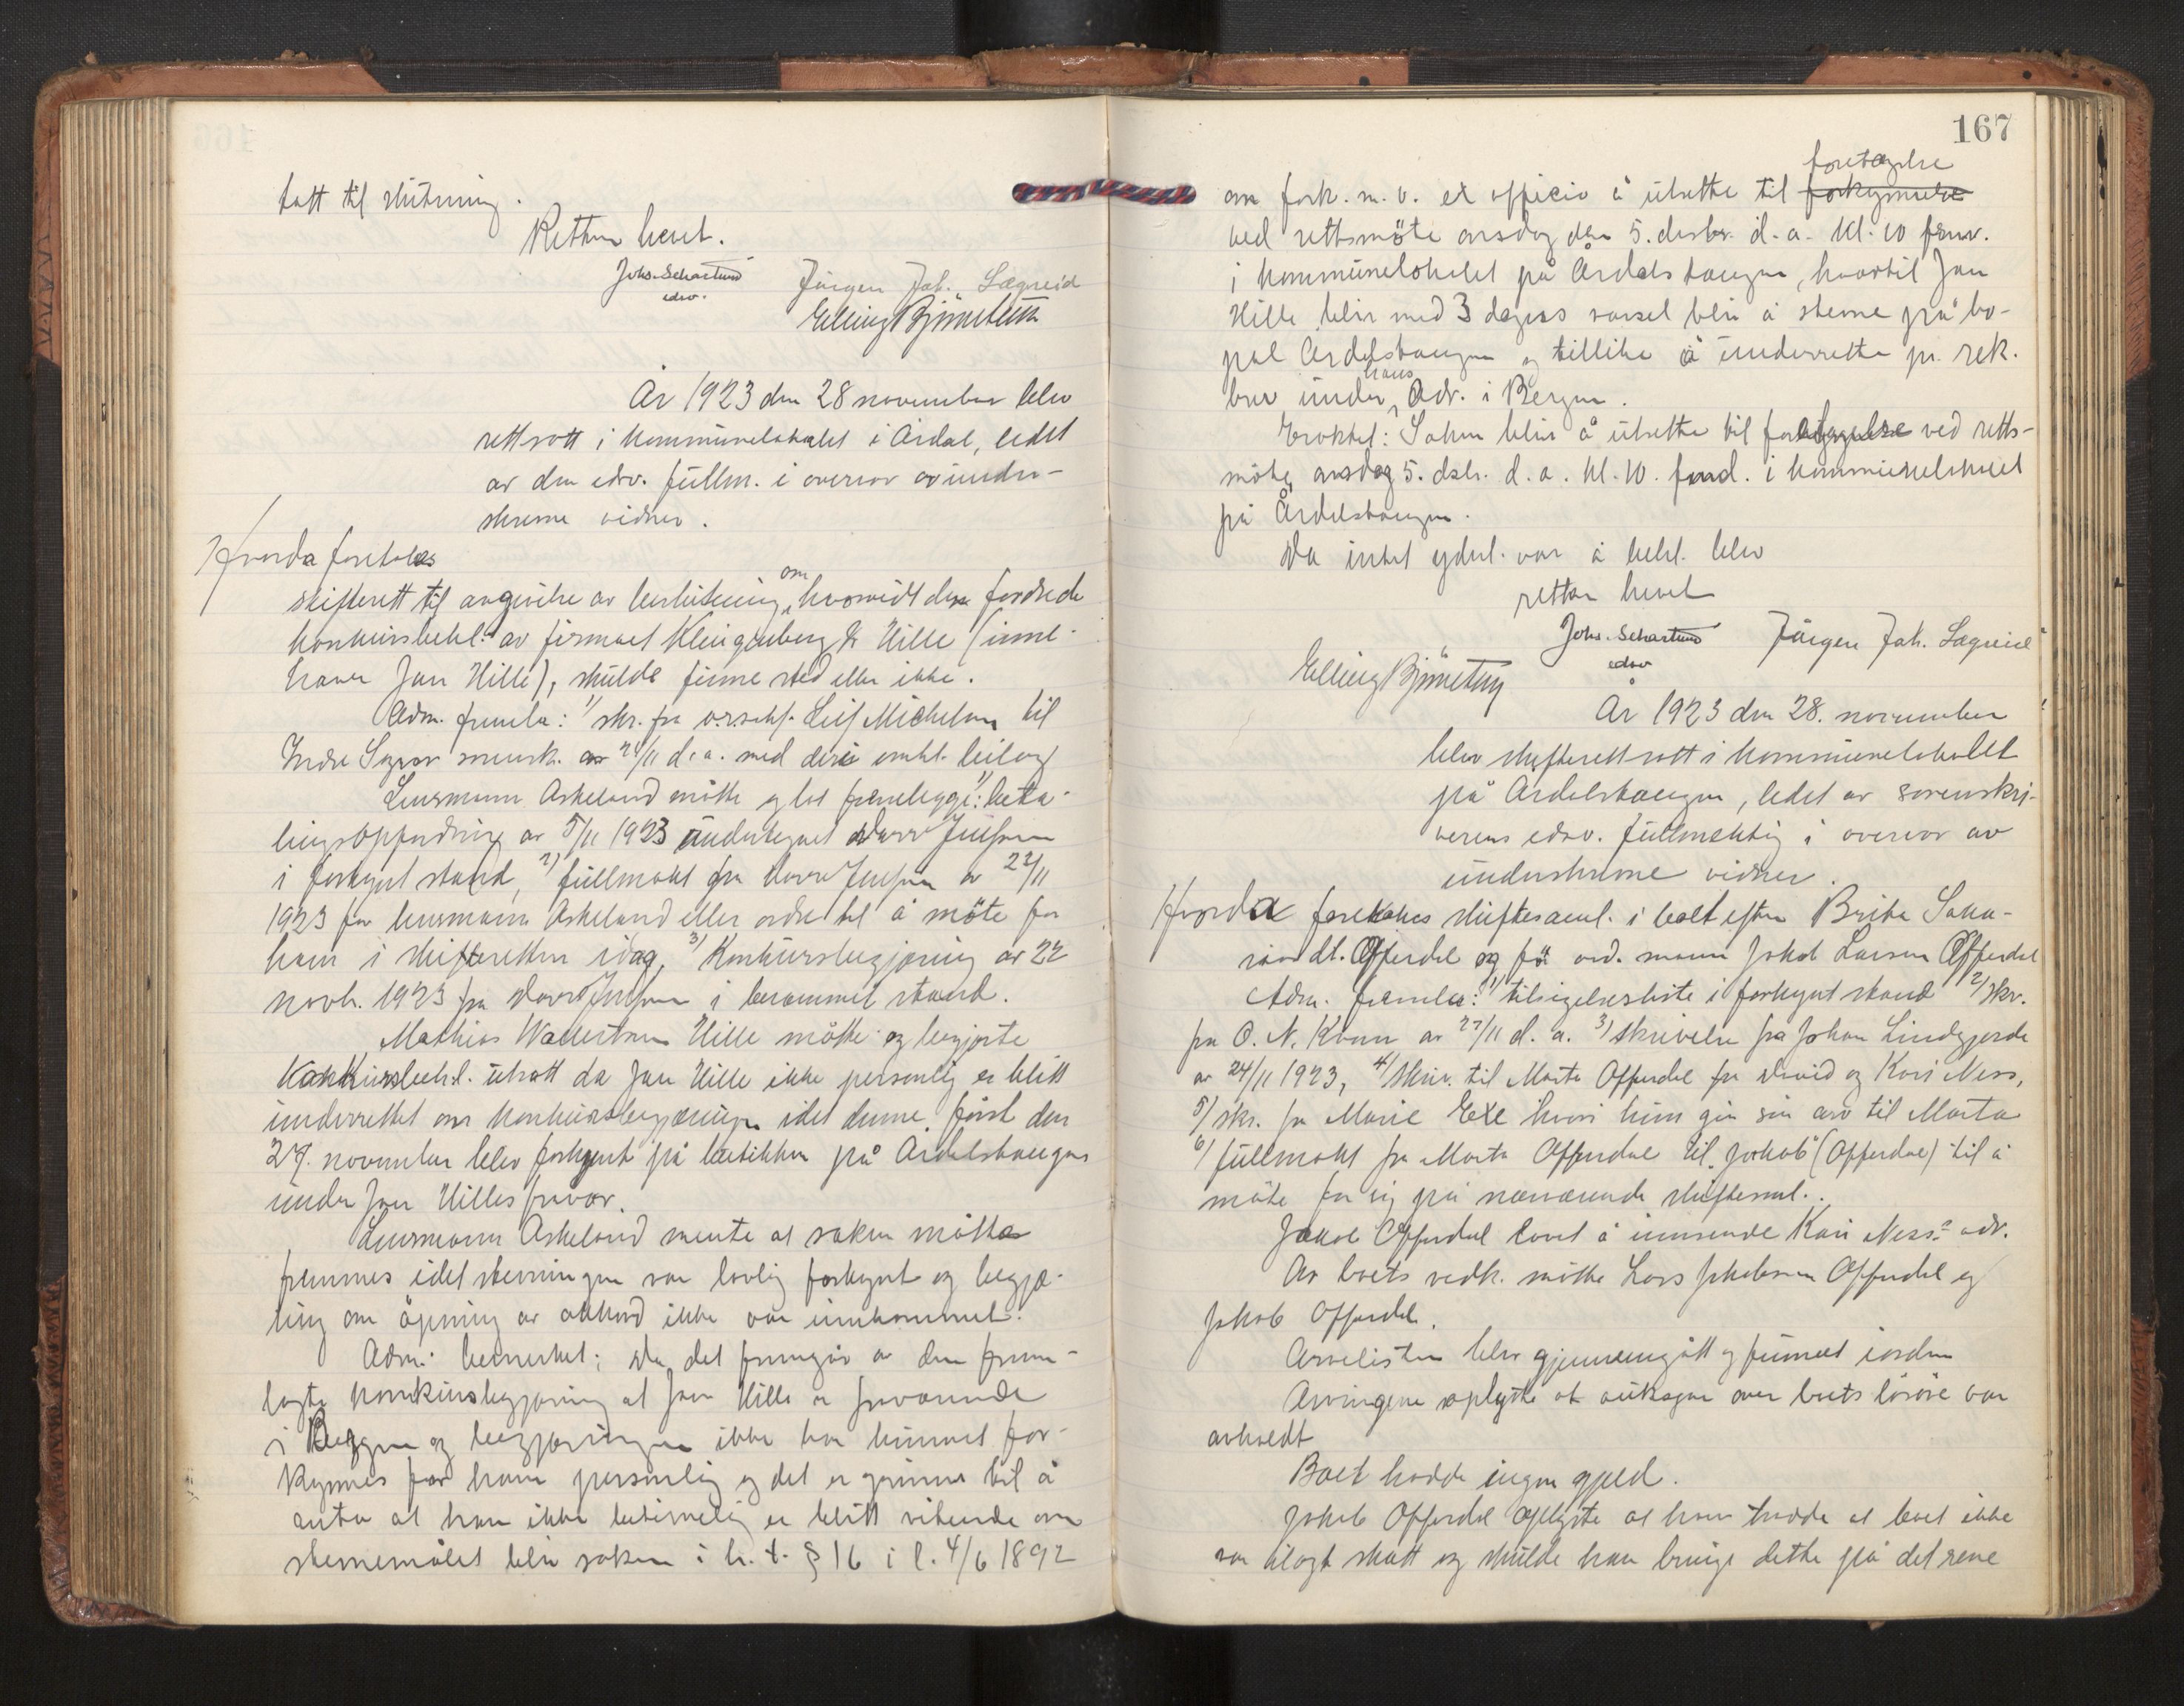 tatt til slutning.
Retten hevet.
Johs. Schartum
edsv.
Jürgen Jak. Lægreid
Elling Bjørnetun
År 1923 den 28 november blev
rett satt i kommunelokalet i Årdal, ledet
av den edsv. fullm. i overvær av under-
skrevne vidner.
Hvorda foretokes
skifterett til avgivelse av beslutning om hvorvidt den fordrede
konkursbehl. av firmaet Klingenberg & Hille (inne-
haver Jan Hille), skulde finne sted eller ikke.
Adm. fremla: 1/ skr. fra o.r.sakf. Leif Michelsen til
Indre Sogns sorensk. av 24/11 d. a. med deri omhl. bilag
Lensmann Askeland møtte og lot fremlegge: 1/ beta-
lingsopfordring av 5/11 1923 undertegnet Jensen
i forkynt stand, 2) fullmakt fra Jensen av 22/11
1923 for lensmann Askeland eller ordre til å møte for
ham i skifteretten idag, 3) Konkursbegjæring av 22
novb. 1923 fra Jensen i berammet stand.
Mathias Hille møtte og begjærte
Konkursbeh.l. utsatt da Jan Hille ikke personlig er blitt
underrettet om konkursbegjæringen idet denne først den
27. november blev forkynt på butikken på Årdalstangen
under Jan Hilles fravær.
Lensmann Askeland mente at saken måtte
fremmes idet stevningen var lovlig forkynt og begjæ-
ring om åpning av akkord ikke var innkommet.
Adm. bemerket: Da det fremgår av den frem-
lagte konkursbegjæring at Jan Hille er fraværende
i Bergen og begjæringen ikke har kunnet for-
kynnes for ham personlig og det er grunn til å
anta at han ikke betimelig er blitt vitende om
stevnemålet blir saken i h. t. § 16 i l. 4/6 1892
167
om fork. m. v. ex officio å utsette til forkynnelse foretagelse
ved rettsmöte onsdag den 5. desbr. d. a. kl. 10 form.
i kommunelokalet på Årdalstangen, hvortil Jan
Hille blir med 3 dagers varsel blir å stevne på bo-
pæl Årdalstangen og tillike å underrette pr. rek.
brev under hans Adr. i Bergen.
Eroktet: Saken blir å utsette til foretagelse ved retts-
möte onsdag 5. dsbr. d. a. kl. 10. form. i kommunelokalet
på Årdalstangen.
Da intet yderl. var å behl. blev
retten hevet
Johs. Schartum
edsv
Jürgen Jak. Lægreid
Elling Bjørnetun
År 1923 den 28. november
blev skifterett satt i kommunelokalet
på Årdalstangen, ledet av sorenskri-
verens edsv. fullmektig i overvær av
underskrevne vidner.
Hvorda foretokes skiftesaml. i boet efter Brita Saka-
riasdt. Offerdal og før avd. mann Jakob Larsen Offerdal
Adm. fremla: 1) tilsigelsesliste i forkynt stand 2/ skr.
fra O. N. Kvam av 27/11 d. a. 3) skrivelse fra Johan Lindegjerde
av 24/11 1923, 4/ skriv. til Marta Offerdal fra David og Kari Ness,
5/ skr. fra Marie Exe hvori hun gir sin arv til Marta
6/ fullmakt fra Marta Offerdal til „Jakob“ (Offerdal) til å
möte for sig på nærværende skiftesaml..
Jakob Offerdal lovet å innsende Kari Ness' adr.
Av boets vedk. møtte Lars Jakobsen Offerdal og
Jakob Offerdal.
Arvelisten blev gjennemgått og funnet iorden
Arvingene oplyste at auksjon over boets løsøre var
avholdt
Boet hadde ingen gjæld.
Jakob Offerdal oplyste at han trodde at boet ikke
var ilagt skatt og skulde han bringe dette på det rene